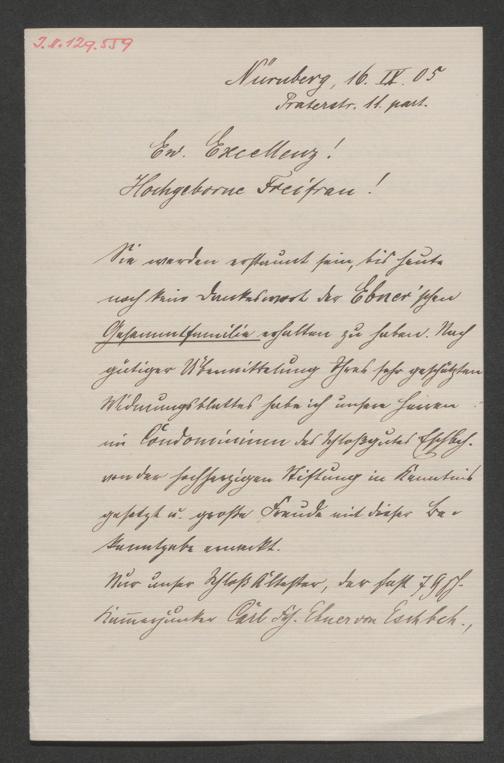 I.N. 129.559
Nürnberg, 16. IX. 05
Praterstr. 11. part.
Ew. Excellenz!
Hochgeborne Freifrau!
Sie werden erstaunt sein, bis heute
noch kein Dankeswort der Ebner'schen
Gesammtfamilie erhalten zu haben. Nach
gütiger Übermittelung Ihres sehr geschätzten
Widmungsblattes habe ich unsere Herren
im Condominium des Schloßgutes Eschbch.
von der hochherzigen Stiftung in Kenntnis
gesetzt u. große Freude mit dieser Be-
kanntgabe erweckt.
Nur unser Schloß Ältester, der fast 79 jh.
Kammerjunker Carl Frh. Ebner von Eschbch.,